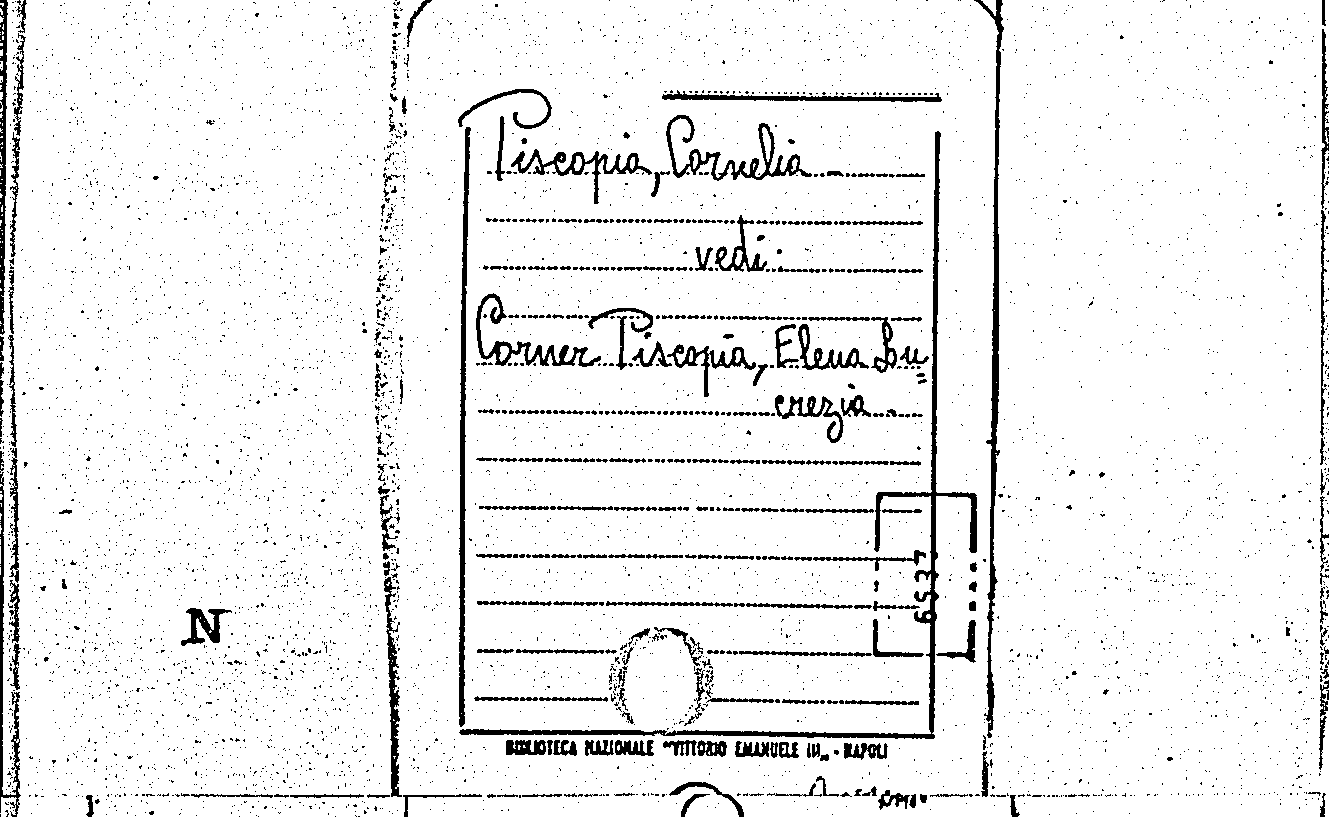 Piscopia, Cornelia -
vedi:
Corner Piscopia, Elena Lu=
crezia -
6537
N
BIBLIOTECA NAZIONALE "VITTORIO EMANUELE III„ - NAPOLI